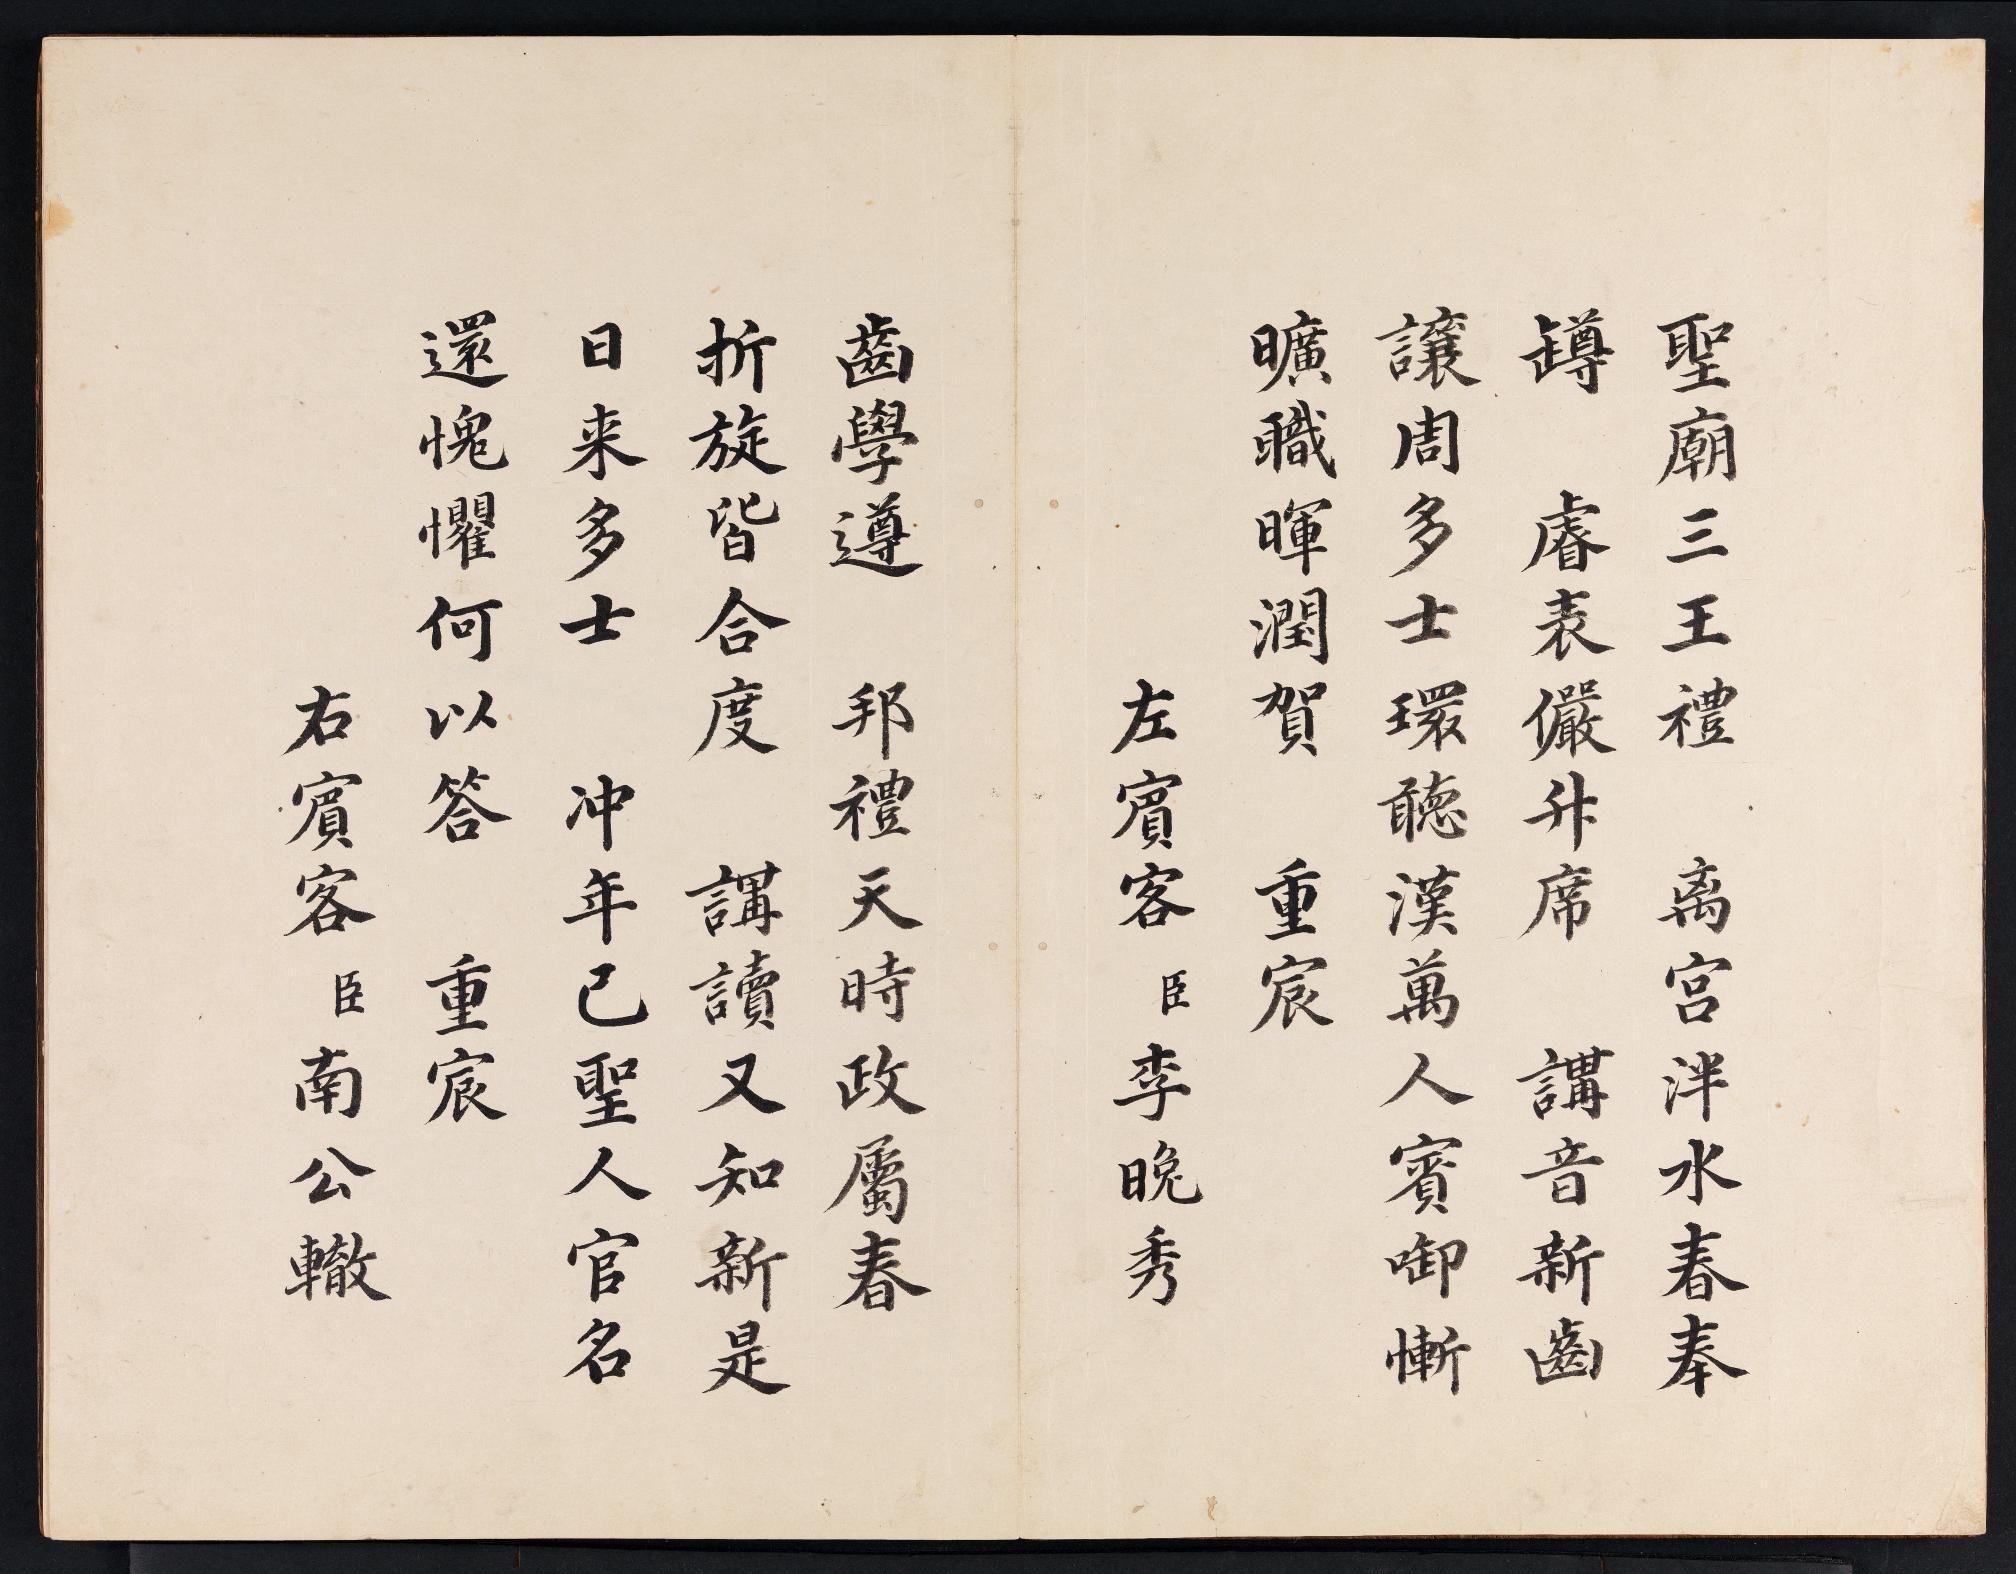 聖廟三王禮 离宮泮水春奉
罇 睿表儼升席 講音新齒
讓周多士環聽漢萬人賓啣慚
曠職暉潤賀 重宸
左賓客 臣 李晩秀
齒學遵 邦禮天時政屬春
折旋皆合度 講讀又知新是
日来多士 冲年已聖人官名
還愧懼何以答 重宸
右賓客 臣 南公轍